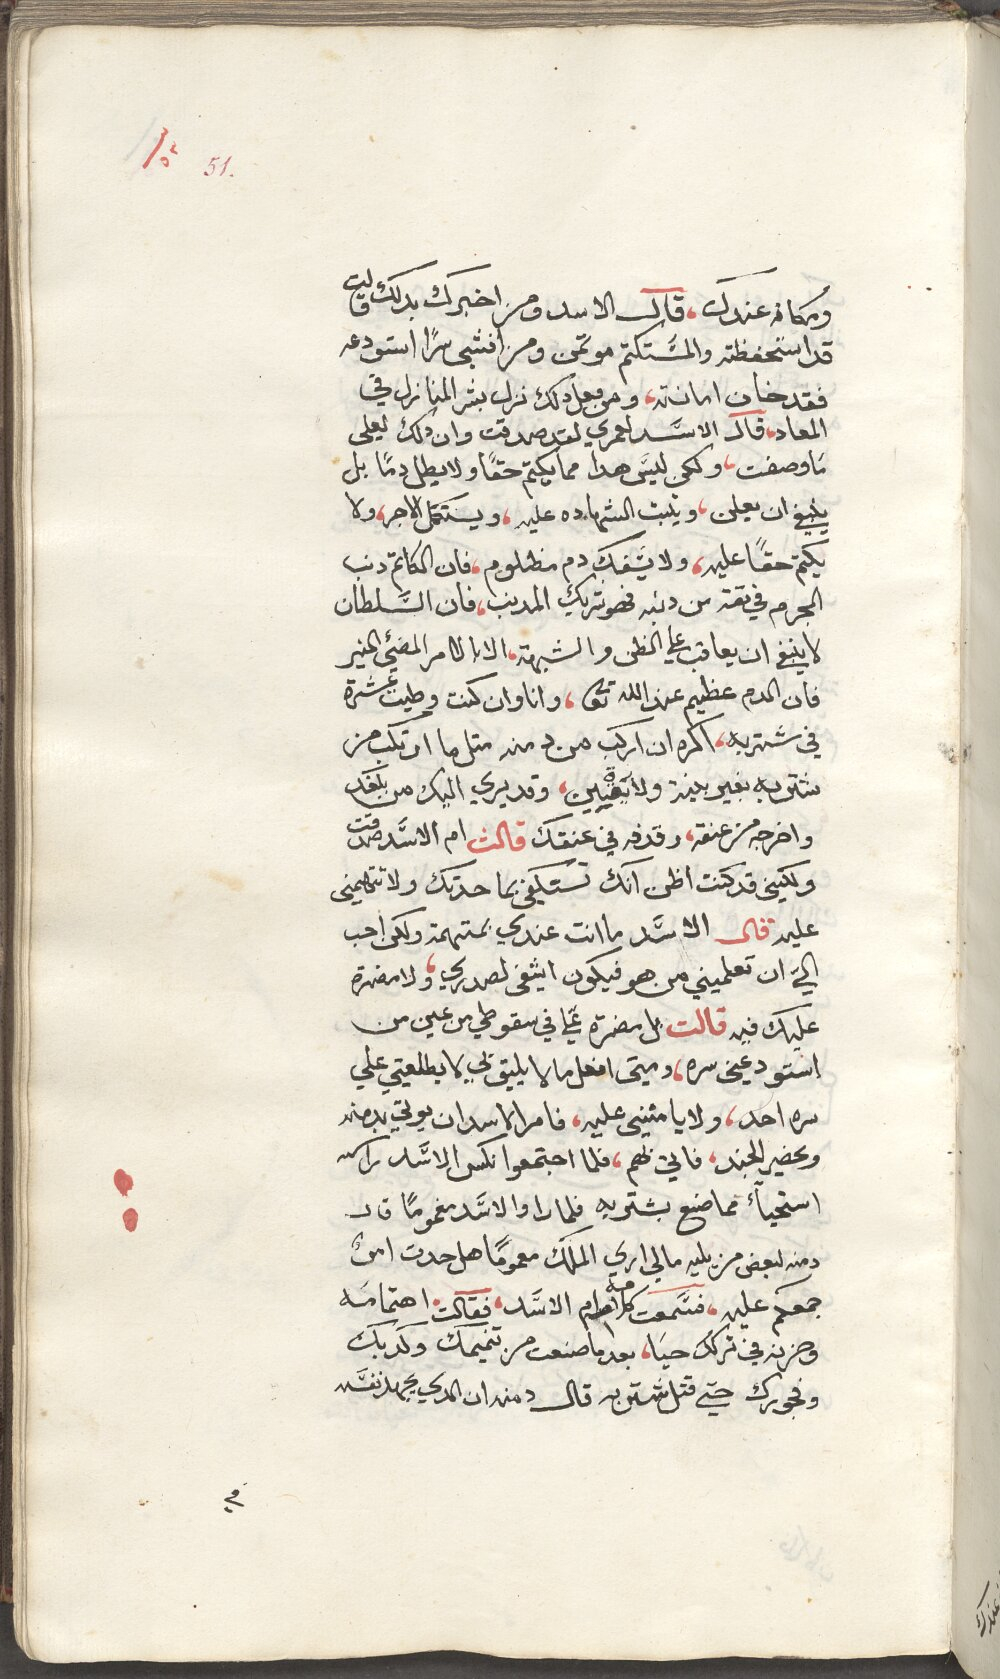 ٥٢ 51.
ومكانه عندك، قال الاسد ومن اخبرك بدلك قالت
قد استحفظته والمستكتم موتمن ومن افشى سرًا استودعه
فقد خان امانته، ومن فعل دلك نزل بشر المنازل في
المعاد، قال الاسد لعمري لقد صدقت وان دلك لعلى
ما وصفت، ولكن ليس هدا مما يكتم حقًا ولا يطل دمًا بل
ينبغي ان يعلن، ويثبت الشهاده عليه، ويستكمل الاجر، ولا
يكتم حقًا عليه، ولا يسفك دم مظلوم، فان الكاتم دنب
المجرم في تقة من دنبه فهو شريك المدنب، فان السلطان
لا ينبغي ان يعاقب علي الظن والشبهة، الا بالامر المضئ المنير
فان الدم عظيم عند الله تعا، وانا وان كنت وطيت عشرة
في شتربه، اكره ان اركب من دمنه متل ما ارتكب من
شتربه بغير بينة ولا يقين، وقد يري اليك من بلغك
واخرجه من عنقه، وقدفه في عنقك قالت ام الاسد صدقت
ولكيني قد كنت اظن انك تستكفي بما حدتك ولا تتهميني
عليه قال الاسد ما انت عندي بمتهمة ولكن احب
الي ان تعلميني من هو فيكون اشفى لصدري، ولا مضرة
عليك فيه قالت بل مضرة علي في سقوطي من عين من
استودعني سره، ومتى افعل ما لا يليق بي لا يطلعني علي
سره احد، ولا يامنني عليه، فامر الاسد ان يوتي بدمنه
ويحضر الجند، فاتي بهم، فلما اجتمعوا نكس الاسد راسه
استحيآء مما صنع بشتربه فلما راوا الاسد مغمومًا قال
دمنه لبعض من يليه مالي اري الملك مغمومًا هل حدت امر
جمعكم عليه، فسمعت كلامه ام الاسد، فقالت، اهتمامه
وحزنه في تركك حيا، بعد ما صنعت من تنميمك وكدبك
وفجورك حتي قتل شتربه قال دمنه ان الدي يجهد نفسه
في
عندك